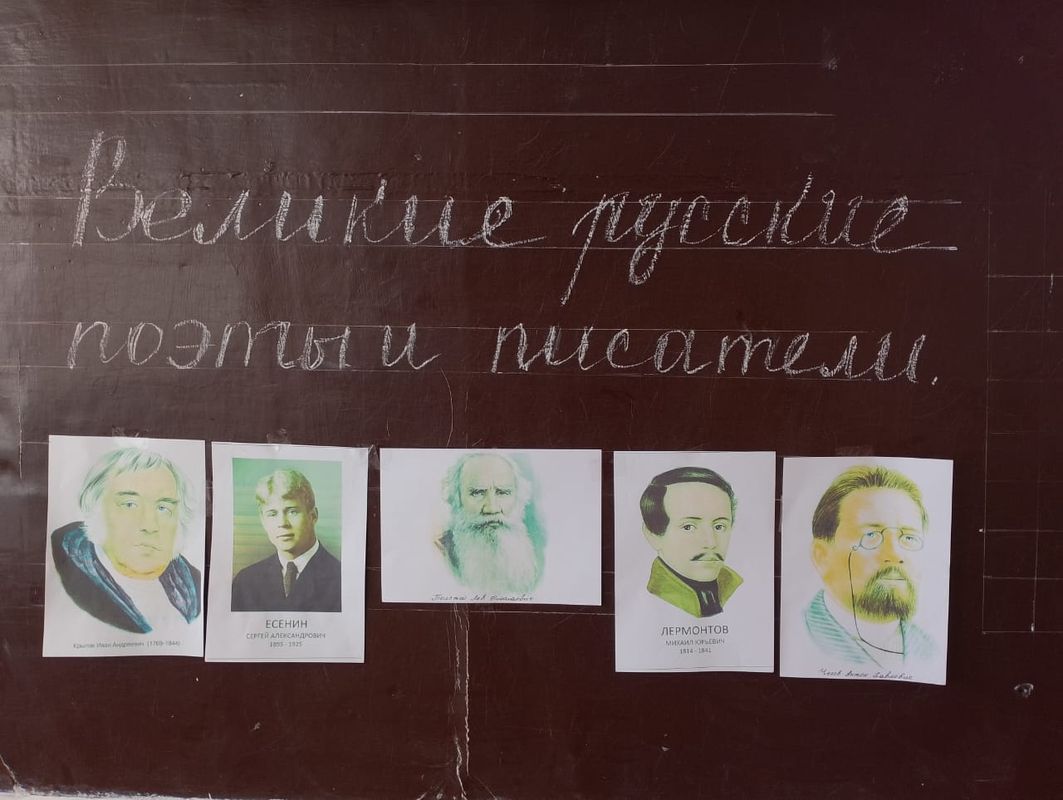 Великие русские
поэты и писатели.
Крылов Иван Андреевич (1769-1844)
ЕСЕНИН
СЕРГЕЙ АЛЕКСАНДРОВИЧ
1895 - 1925
Толстой Лев Николаевич
ЛЕРМОНТОВ
МИХАИЛ ЮРЬЕВИЧ
1814 - 1841
Чехов Антон Павлович